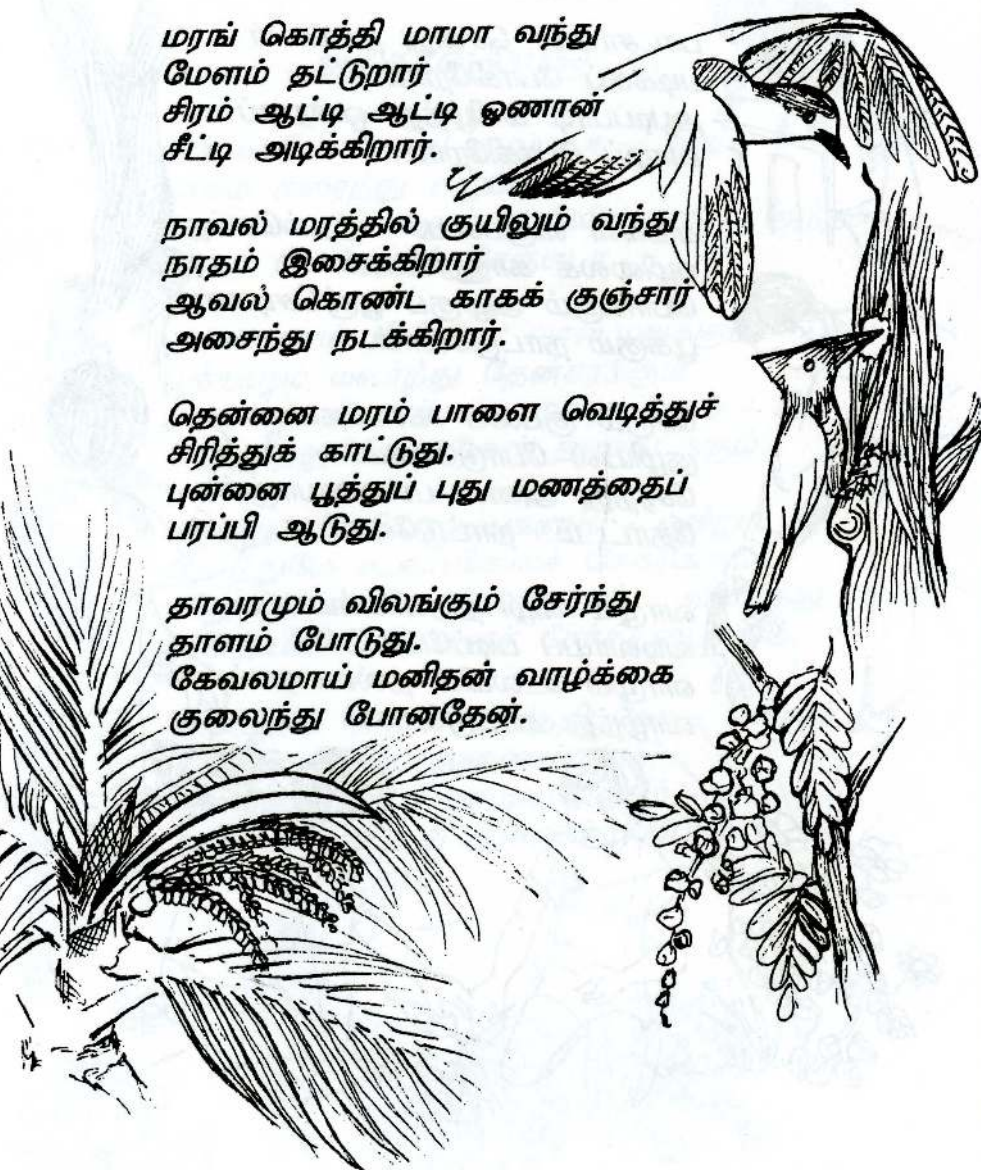 மரங் கொத்தி மாமா வந்து
மேளம் தட்டுறார்
சிரம் ஆட்டி ஆட்டி ஓணான்
சீட்டி அடிக்கிறார்.
நாவல் மரத்தில் குயிலும் வந்து
நாதம் இசைக்கிறார்
ஆவல் கொண்ட காகக் குஞ்சார்
அசைந்து நடக்கிறார்.
தென்னை மரம் பாளை வெடித்துச்
சிரித்துக் காட்டுது.
புன்னை பூத்துப் புது மணத்தைப்
பரப்பி ஆடுது.
தாவரமும் விலங்கும் சேர்ந்து
தாளம் போடுது.
கேவலமாய் மனிதன் வாழ்க்கை
குலைந்து போனதேன்.